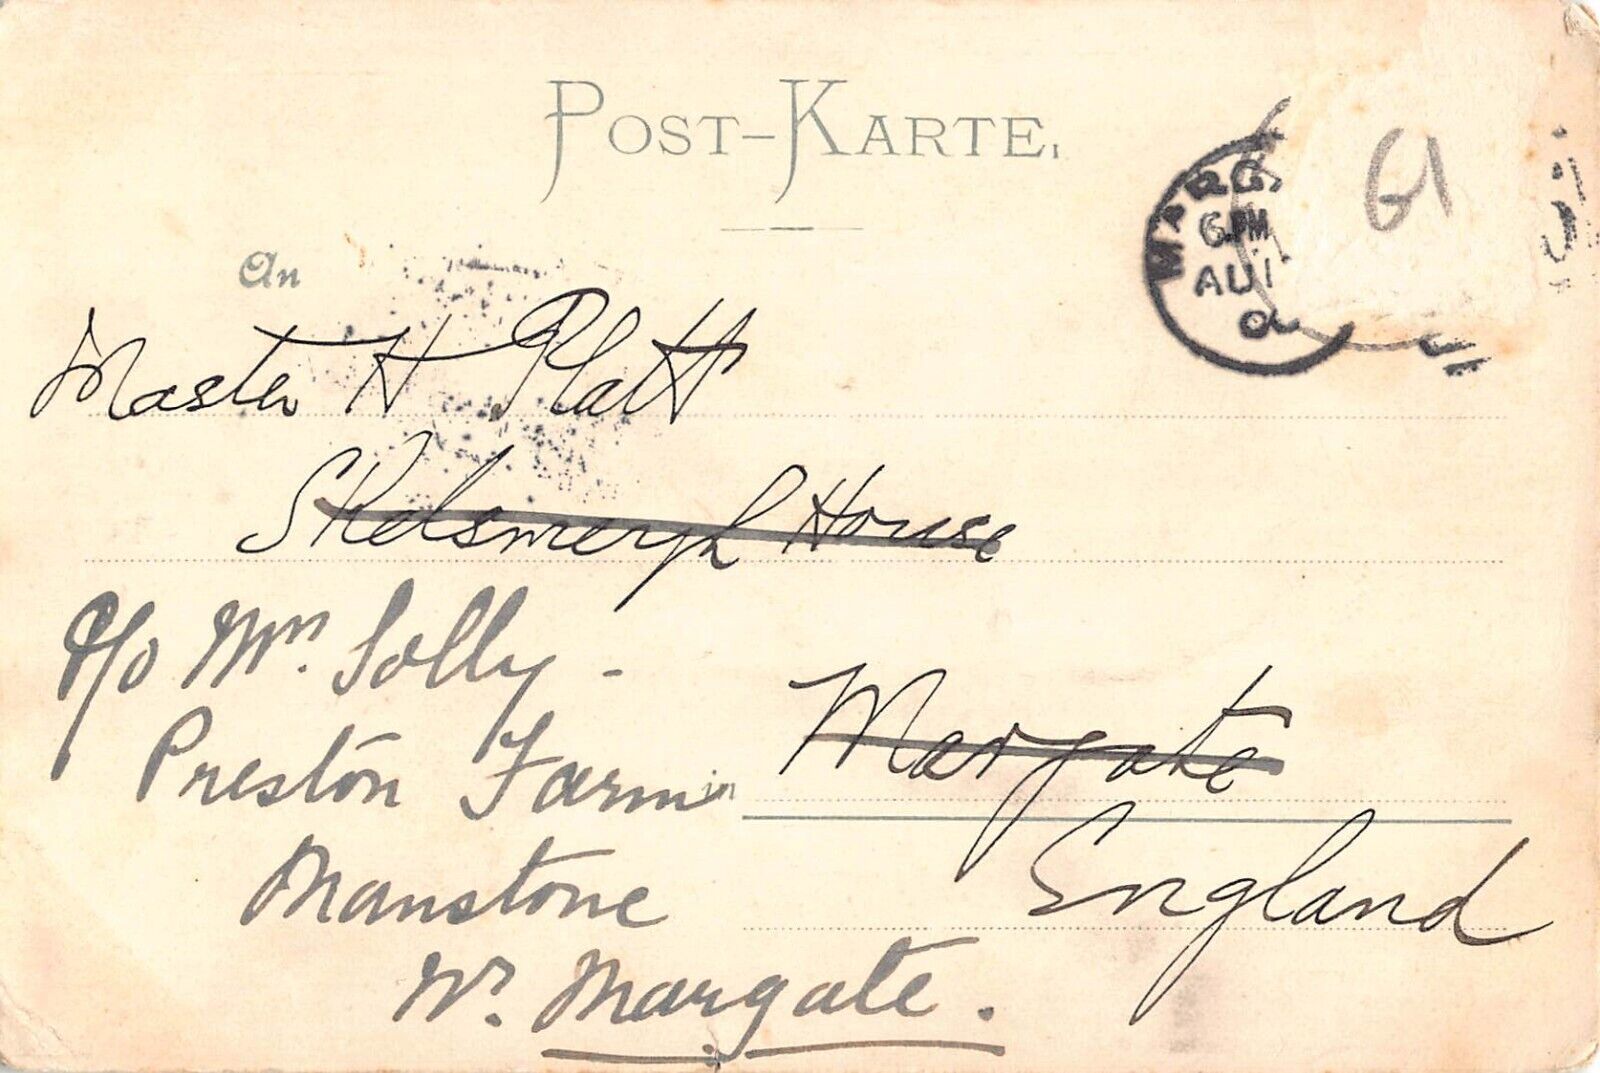 POST-KARTE.
MARG
6.PM
AU
0
G1
An
Master H Platt
Skelsmergh House
c/o Mrs. Solly -
Margate
Preston Farm
England
Manstone
Nr. Margate.